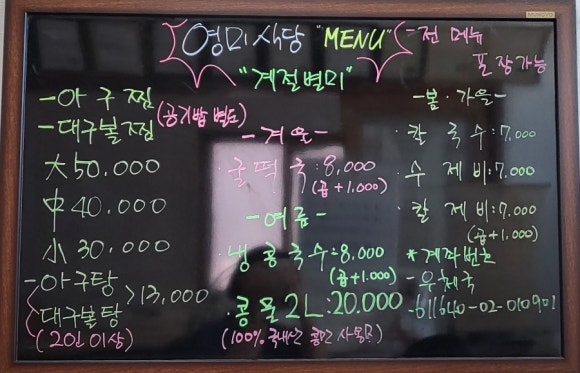 영미식당 "MENU" - 전 메뉴 포장가능
"계절별미"
- 아구찜
- 대구볼찜 (공기밥 별도)
大 50,000
中 40,000
小 30,000
- 아구탕
대구볼탕 > 13,000
(2인 이상)
- 겨울 -
· 굴떡국 : 8,000
(곱 +1,000)
- 여름 -
· 냉콩국수 : 8,000
(곱 +1,000)
· 콩물 2L : 20,000
(100% 국내산 콩만 사용)
- 봄 · 가을 -
· 칼국수 : 7,000
· 수제비 : 7,000
· 칼제비 : 7,000
(곱 +1,000)
* 계좌번호
- 우체국
- 611640-02-010901